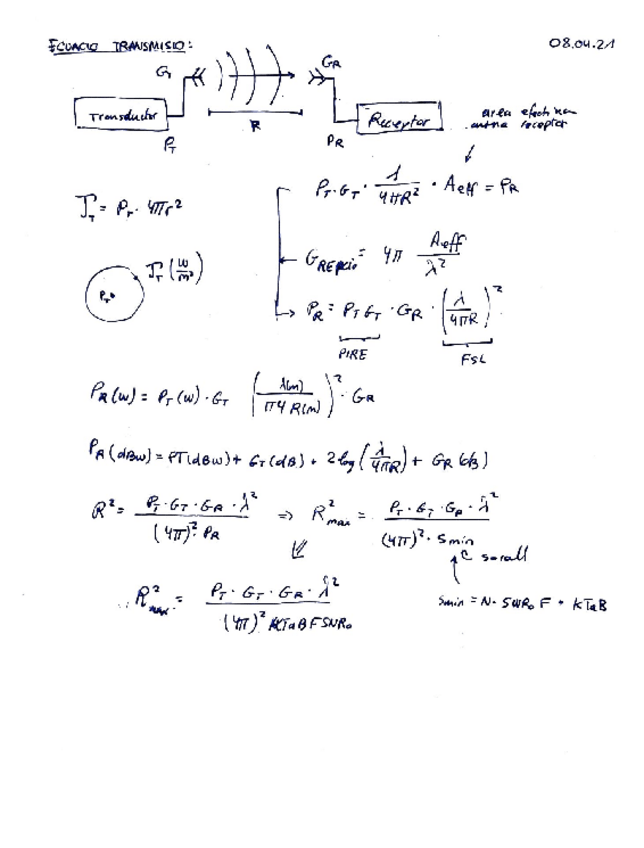 ECUACIO TRANSMISIO: 08.04.21
G_T G_R
Transductor R Receptor
P_T P_R
area efectiva
antena receptor
P_T · G_T · λ/4πR² · Aeff = P_R
J_T = P_T · 4πr²
J_T (W/m²)
P_T
G_REPCIO = 4π Aeff/λ²
P_R = P_T G_T · G_R · (λ/4πR)²
PIRE FSL
P_R(W) = P_T(W) · G_T (λ(m)/π4R(m))² · G_R
P_R(dBW) = PT(dBW) + G_T(dB) + 2log(λ/4πR) + G_R(dB)
R² = P_T · G_T · G_R · λ²/(4π)² · P_R ⇒ R²max = P_T · G_T · G_R · λ²/(4π)² · Smin
R²max = P_T · G_T · G_R · λ²/(4π)² KTaBFSNRo
Smin = N · SNRo F · KTaB